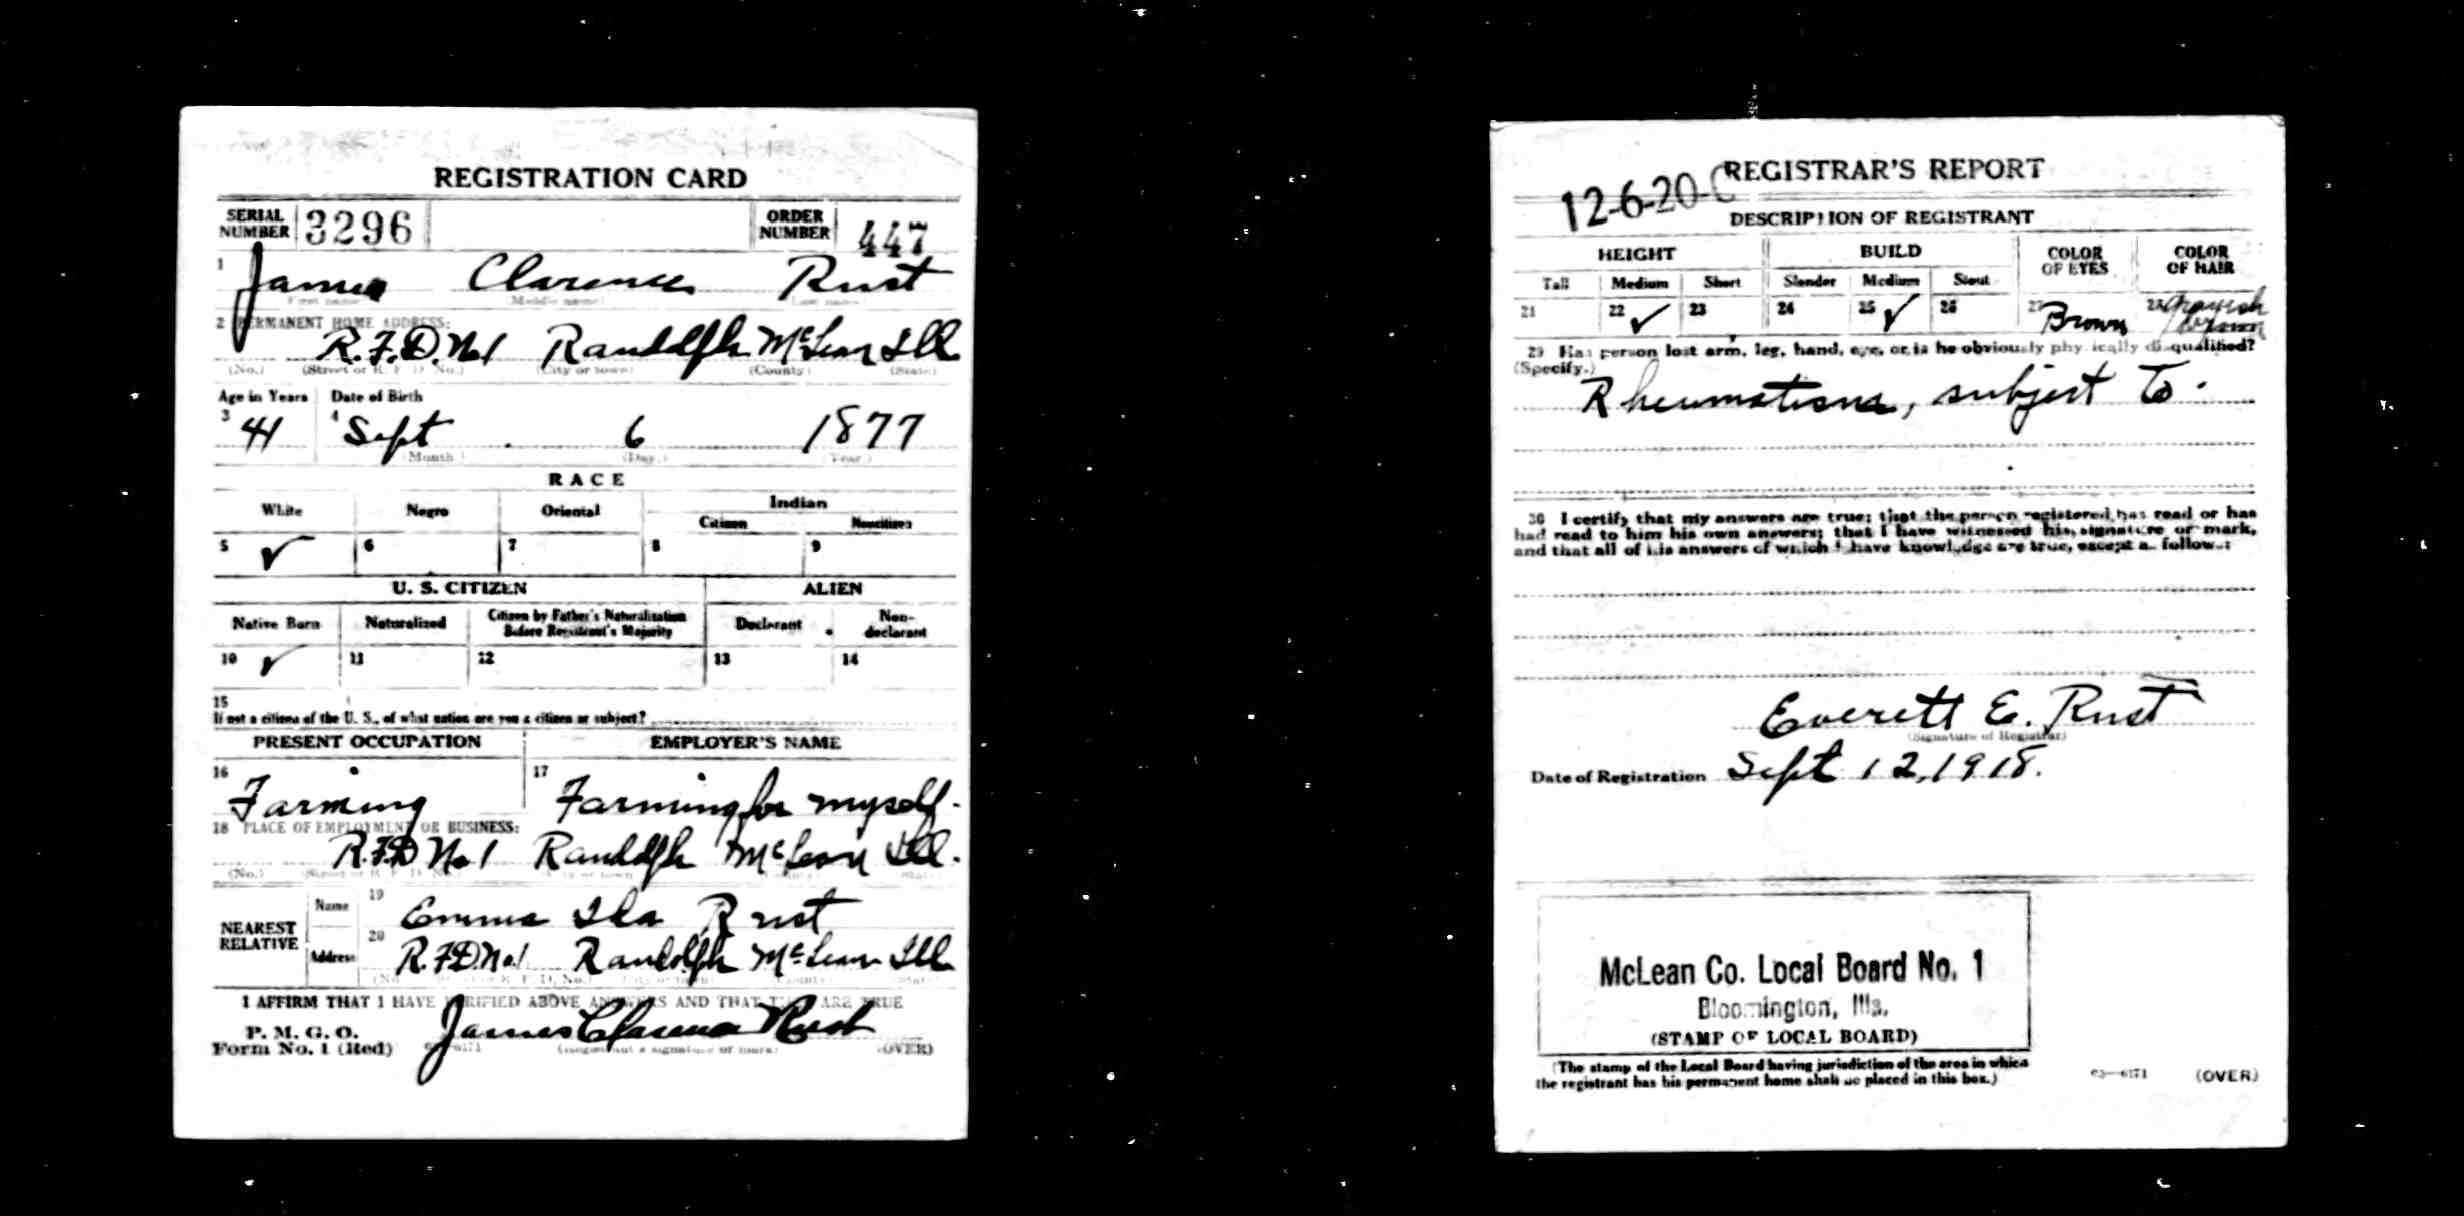 REGISTRATION CARD
SERIAL NUMBER 3296 ORDER NUMBER 447
1 James Clarence Rust
First name Middle name Last name
2 PERMANENT HOME ADDRESS:
R.F.D. No 1 Randolph McLean Ill
(No.) (Street or R. F. D. No.) (City or town) (County) (State)
Age in Years Date of Birth
3 41 4 Sept 6 1877
(Month) (Day) (Year)
RACE
White Negro Oriental Indian
Citizen Noncitizen
5 ✓ 6 7 8 9
U. S. CITIZEN ALIEN
Native Born Naturalized Citizen by Father's Naturalization Before Registrant's Majority Declarant Non-declarant
10 ✓ 11 12 13 14
15
If not a citizen of the U. S., of what nation are you a citizen or subject?
PRESENT OCCUPATION EMPLOYER'S NAME
16 Farming 17 Farming for myself.
18 PLACE OF EMPLOYMENT OR BUSINESS:
R.F.D No 1 Randolph McLean Ill.
(No.)
NEAREST RELATIVE Name 19 Emma Ida Rust
Address 20 R.F.D. No 1 Randolph McLean Ill
I AFFIRM THAT I HAVE VERIFIED ABOVE ANSWERS AND THAT THEY ARE TRUE
P. M. G. O.
Form No. 1 (Red) James Clarence Rust
(OVER)
REGISTRAR'S REPORT
12-6-20-C
DESCRIPTION OF REGISTRANT
HEIGHT BUILD COLOR OF EYES COLOR OF HAIR
Tall Medium Short Slender Medium Stout
21 22 ✓ 23 24 25 ✓ 26 27 Brown 28 Grayish brown
29 Has person lost arm, leg, hand, eye, or is he obviously physically disqualified?
(Specify.)
Rheumatism, subject to.
30 I certify that my answers are true; that the person registered has read or has
had read to him his own answers; that I have witnessed his signature or mark,
and that all of his answers of which I have knowledge are true, except as follows:
Everett E. Rust
(Signature of Registrar)
Date of Registration Sept 12, 1918.
McLean Co. Local Board No. 1
Bloomington, Ills.
(STAMP OF LOCAL BOARD)
(The stamp of the Local Board having jurisdiction of the area in which
the registrant has his permanent home shall be placed in this box.)
03—6171 (OVER)